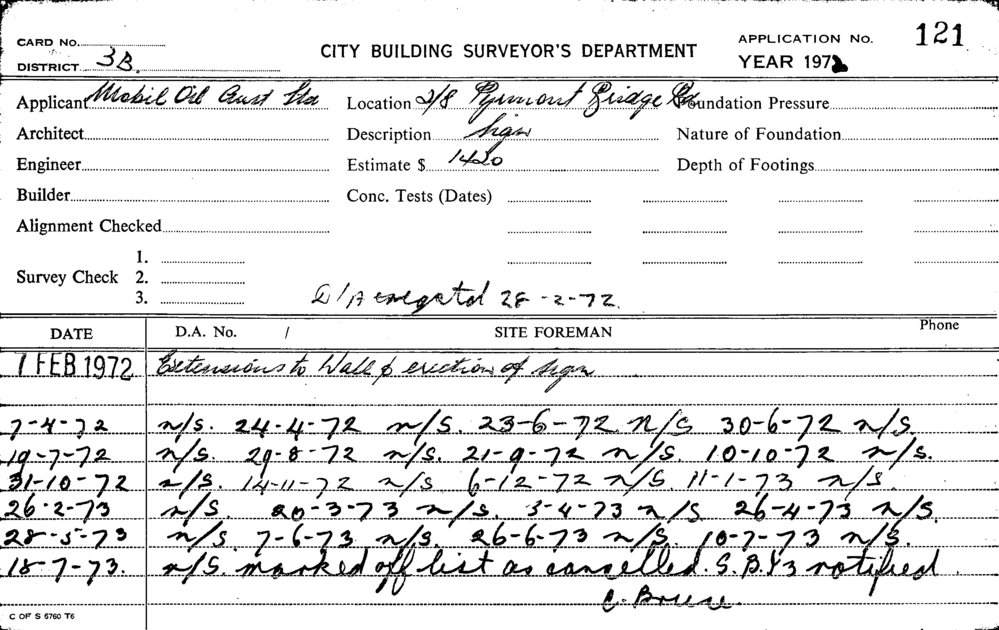 CARD No. CITY BUILDING SURVEYOR'S DEPARTMENT APPLICATION No. 121
DISTRICT 3B. YEAR 1972
Applicant Mobil Oil Aust Ltd Location 2/8 Pyrmont Bridge Rd Foundation Pressure
Architect Description Sign Nature of Foundation
Engineer Estimate $ 1420 Depth of Footings
Builder Conc. Tests (Dates)
Alignment Checked
1.
Survey Check 2.
3.
D/A 28-2-72.
DATE D.A. No. / SITE FOREMAN Phone
1 FEB 1972 Extensions to Wall & erection of sign
7-4-72 n/s. 24-4-72 n/s. 23-6-72 N/S 30-6-72 n/s.
19-7-72 n/s. 29-8-72 n/s. 21-9-72 n/s. 10-10-72 n/s.
31-10-72 n/s. 14-11-72 n/s 6-12-72 n/s. 11-1-73 n/s.
26-2-73 n/s. 20-3-73 n/s. 3-4-73 n/s 26-4-73 n/s.
28-5-73 n/s 7-6-73 n/s. 26-6-73 n/s. 10-7-73 n/s.
18-7-73. n/s. marked off list as cancelled. notified.
C. Bruce.
C OF S 6760 T6